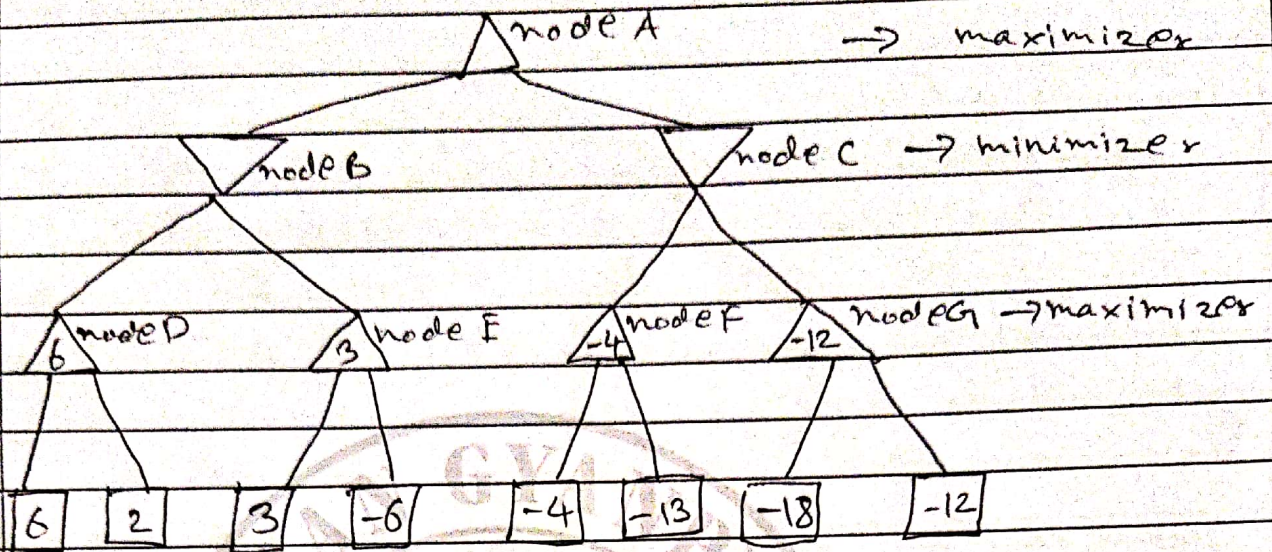 node A → maximizer
node B
node C → minimizer
node D
node E
node F
node G → maximizer
6
3
-4
-12
6 2 3 -6 -4 -13 -18 -12
GYA